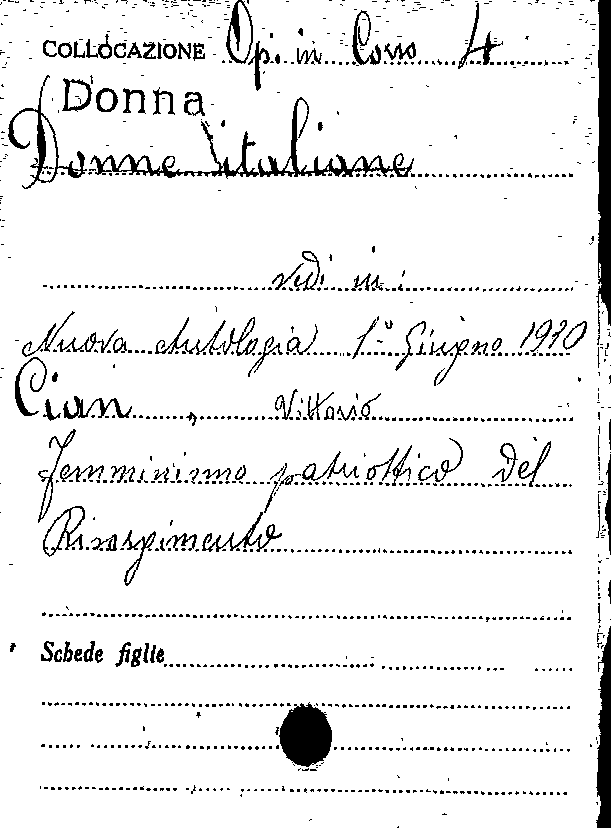 COLLOCAZIONE Op. in Corso 4
Donna
Donne italiane
vedi in:
Nuova Antologia 1º Giugno 1930
Cian, Vittorio
Femminismo patriottico del
Risorgimento
Schede figlie